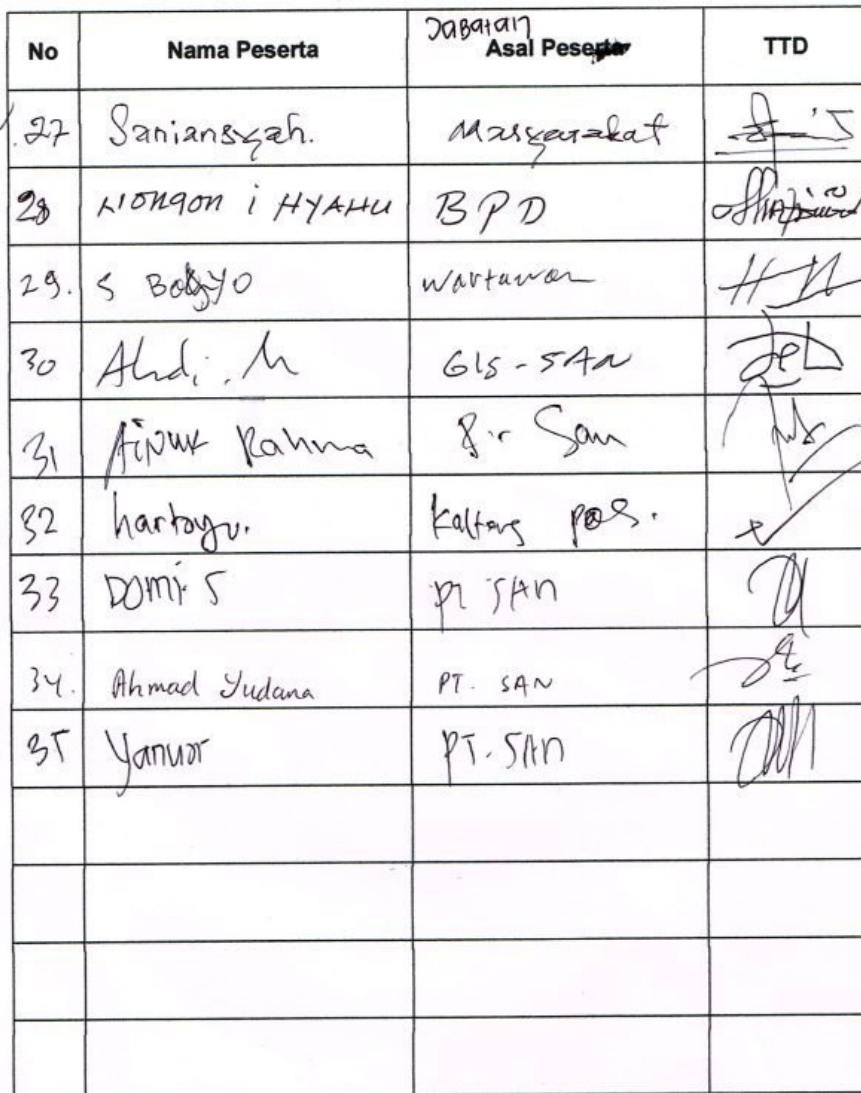 Jabatan
No Nama Peserta Asal Peserta TTD
27 Saniansyah. Masyarakat
28 I HYAHU BPD
29. S wartawan
30 Ahdi. M GIS-SAN
31 Rahma San
32 hartoyo. Kalteng pos.
33 DOMI S PT SAN
34. Ahmad Yudana PT. SAN
35 Yanuar PT. SAN